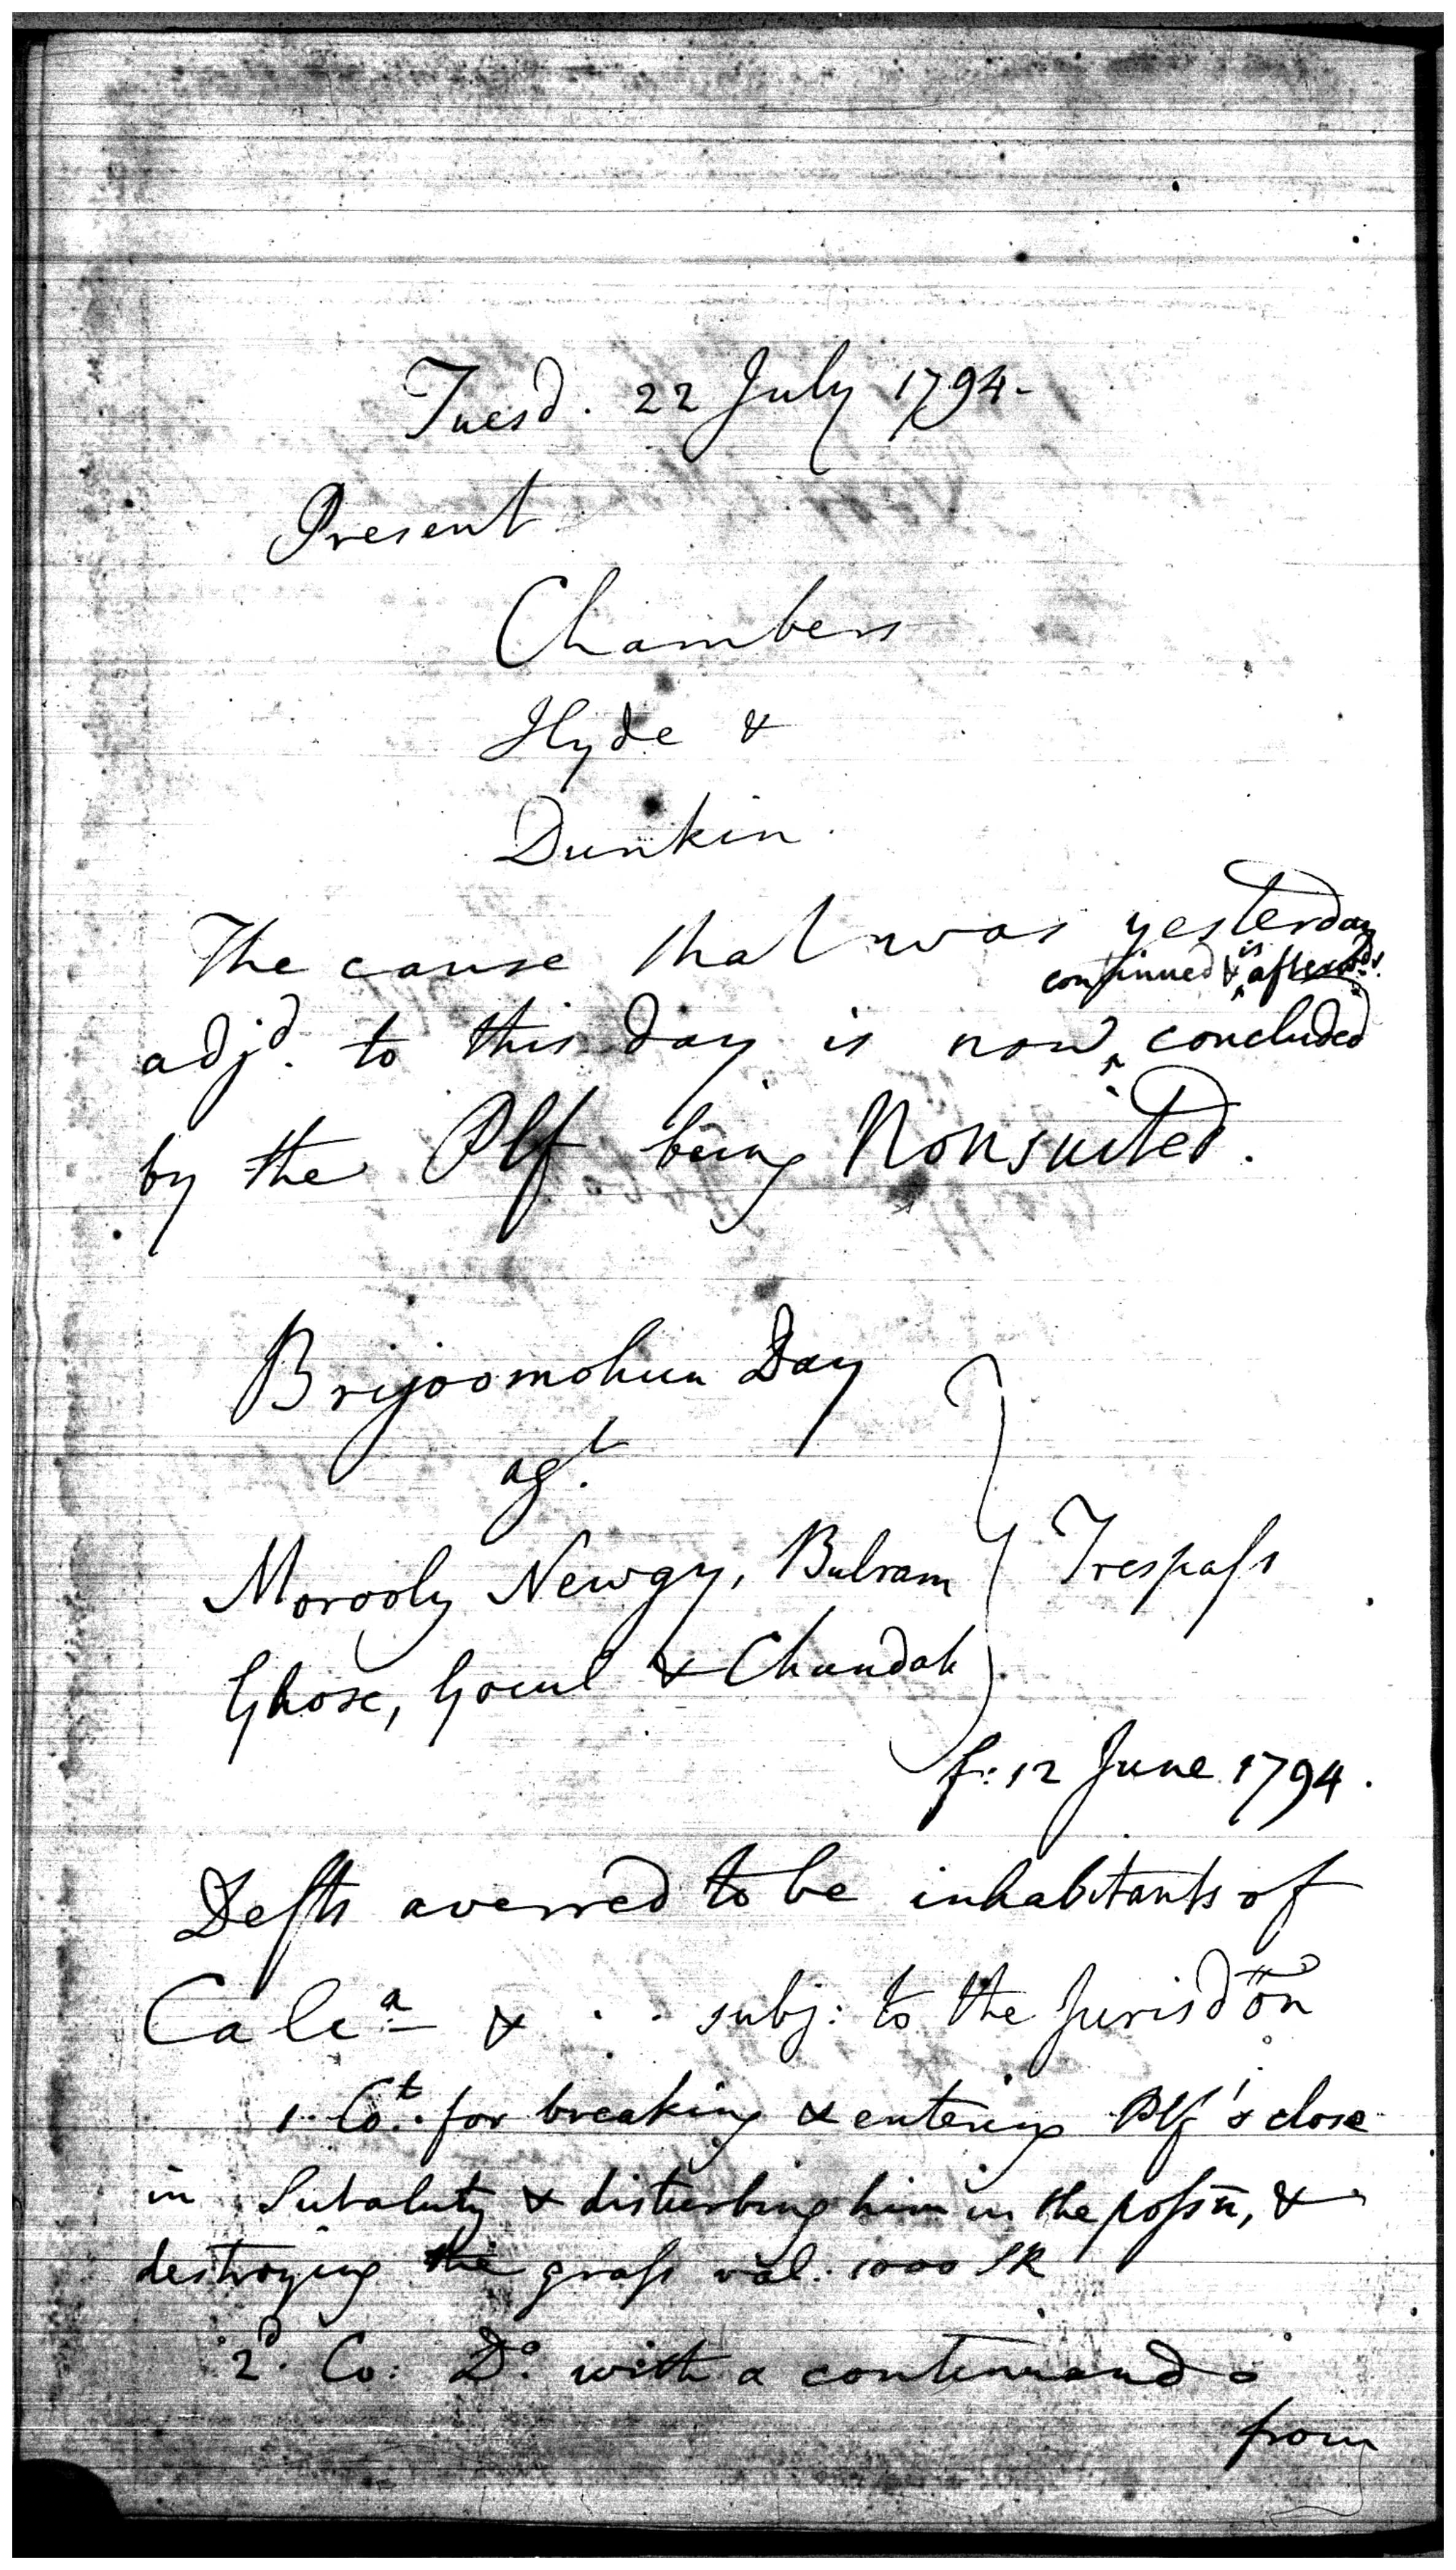 Tuesd. 22 July 1794-
Present
Chambers
Hyde &
Dunkin.
The cause that was yesterday
continued & is afterwds.
adjd. to this day is now concluded
by the Plf being Nonsuited.
Brijoomohun Day
agt.
Morooly Newgy, Bulram
Ghose, Gocul & Chundah
Trespass
f: 12 June 1794.
Defts averred to be inhabitants of
Calca & . . subj: to the Jurisdon
1. Cot. for breaking & entering Plf's close
in Sutaluty & disturbing him in the possn, &
destroying the grass val: 1000 SR
2d. Co: Do. with a continuando
from